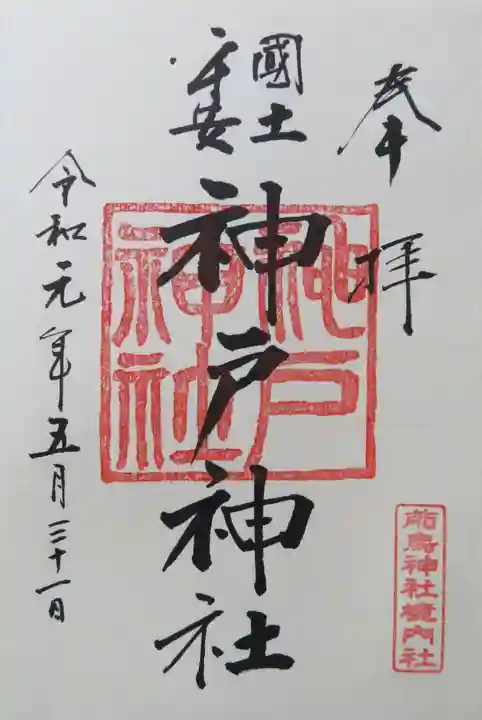 奉拝
國土
平安
神戸神社
令和元年五月三十一日
神戸
神社
前鳥神社境内社